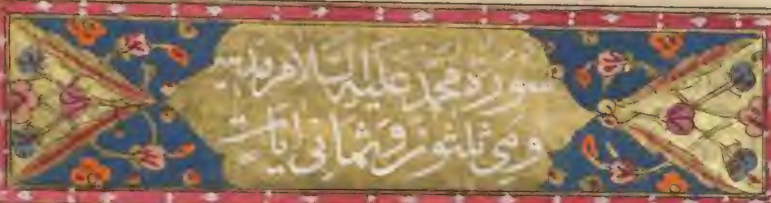 سورة محمد علیه السلام مدنیة
وهي ثلثون وثماني ایات